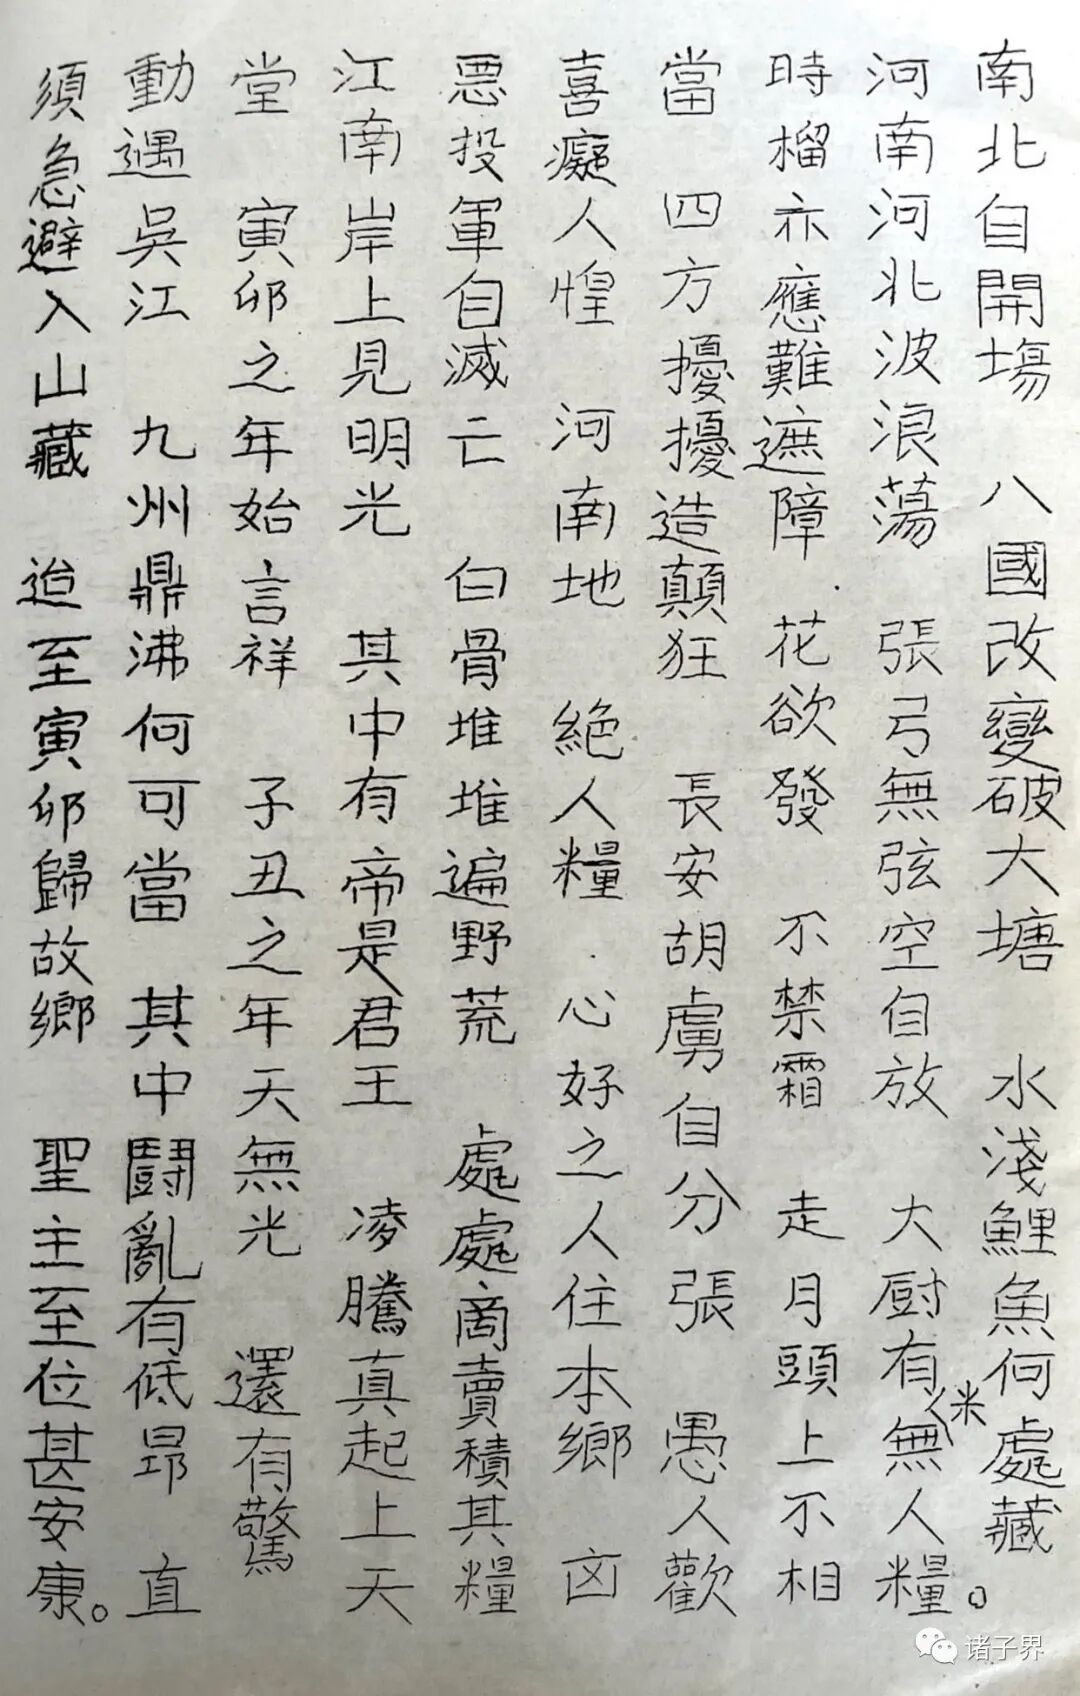 南北自開塲　八國改變破大塘　水淺鯉魚何處藏
河南河北波浪蕩　張弓無弦空自放　大厨有米無人糧。
時榴亦應難遮障．花欲發　不禁霜　走月頭上不相
當　四方擾擾造顛狂　長安胡虜自分張　愚人歡
喜癡人惶　河南地　絕人糧．心好之人住本鄉　凶
惡投軍自滅亡　白骨堆堆遍野荒　處處商賣積其糧
江南岸上見明光　其中有帝是君王　凌騰真起上天
堂　寅卯之年始言祥　子丑之年天無光　還有驚
動遇吳江　九州鼎沸何可當　其中鬪亂有低昂　直
須急避入山藏　迨至寅卯歸故鄉　聖主至位甚安康。
诸子界